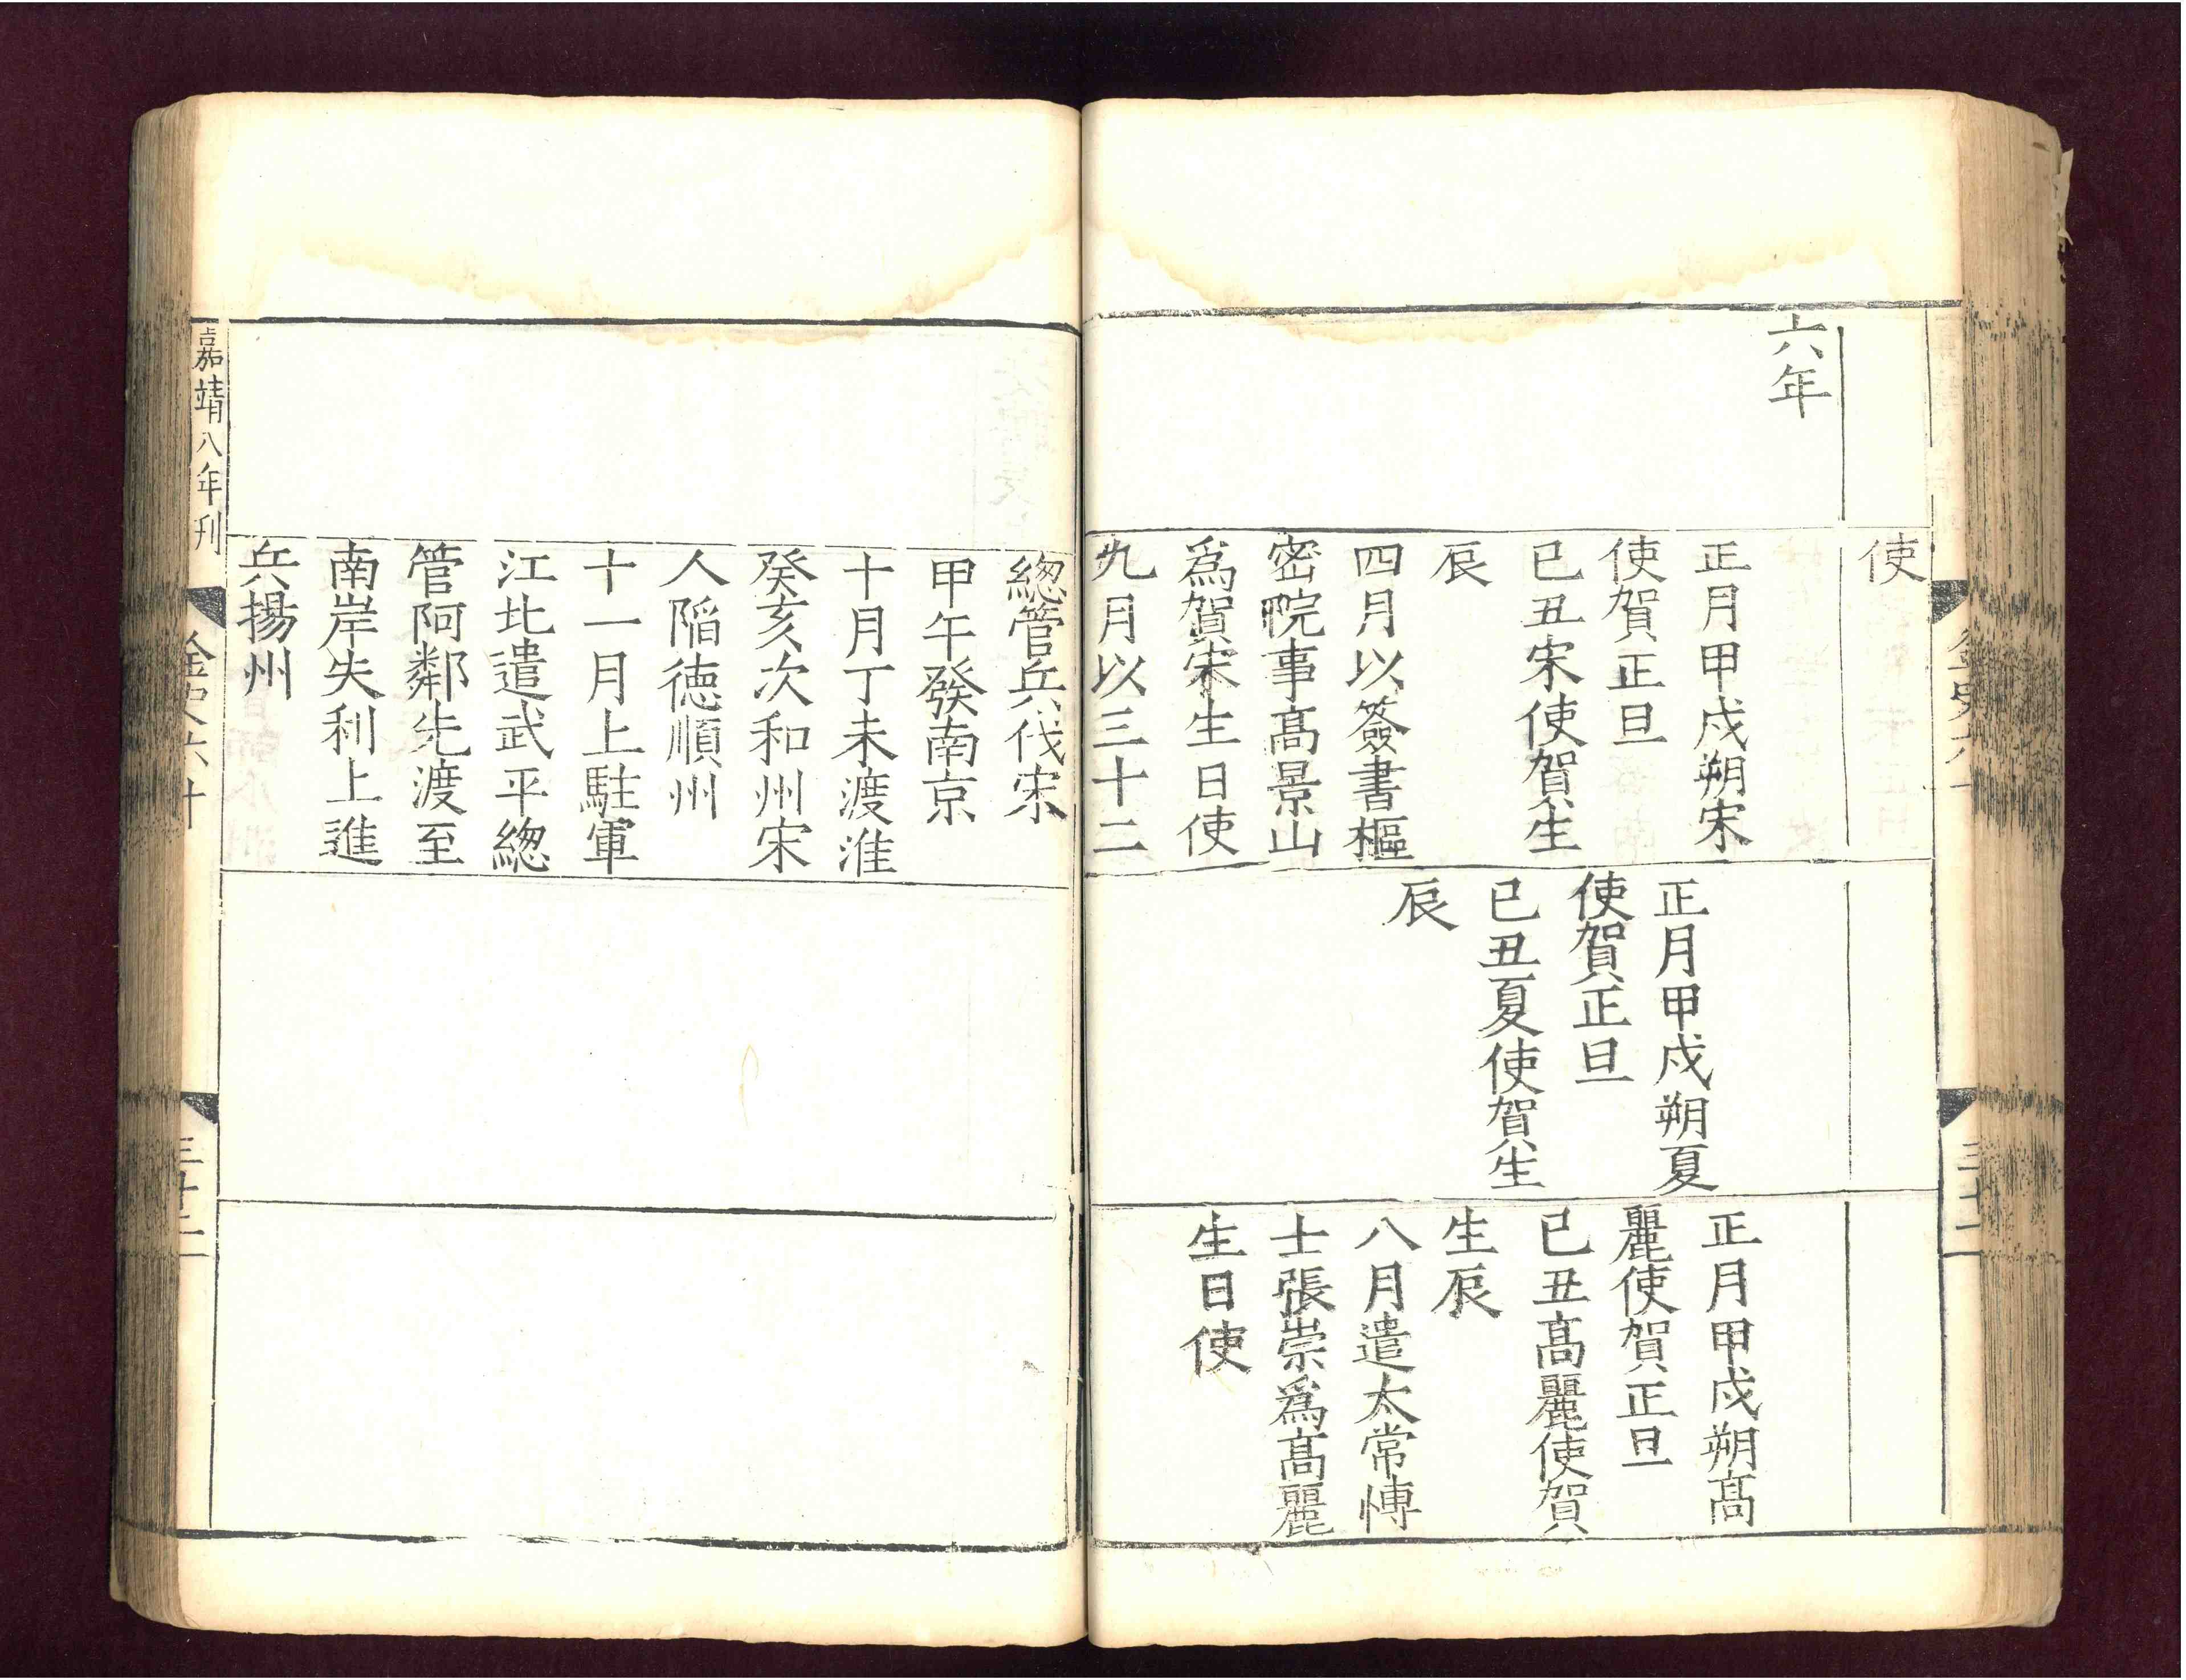 使
六年
正月甲戍朔宋
使賀正旦
已丑宋使賀生
辰
四月以簽書樞
密院事髙景山
爲賀宋生日使
九月以三十二
正月甲戍朔夏
使賀正旦
已丑夏使賀生
辰
正月甲戍朔髙
麗使賀正旦
已丑髙麗使賀
生辰
八月遣太常愽
士張崇爲髙麗
生日使
緫管兵伐宋
甲午發南京
十月丁未渡淮
癸亥次和州宋
人陷德順州
十一月上駐軍
江北遣武平緫
管阿鄰先渡至
南岸失利上進
兵揚州
嘉靖八年刋
金史六十